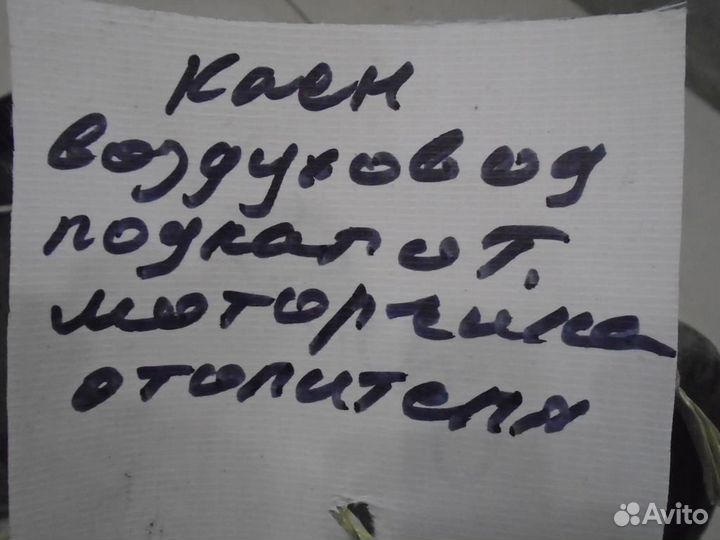 Каен
воздуховод
подкапот.
моторчика
отопителя
Avito